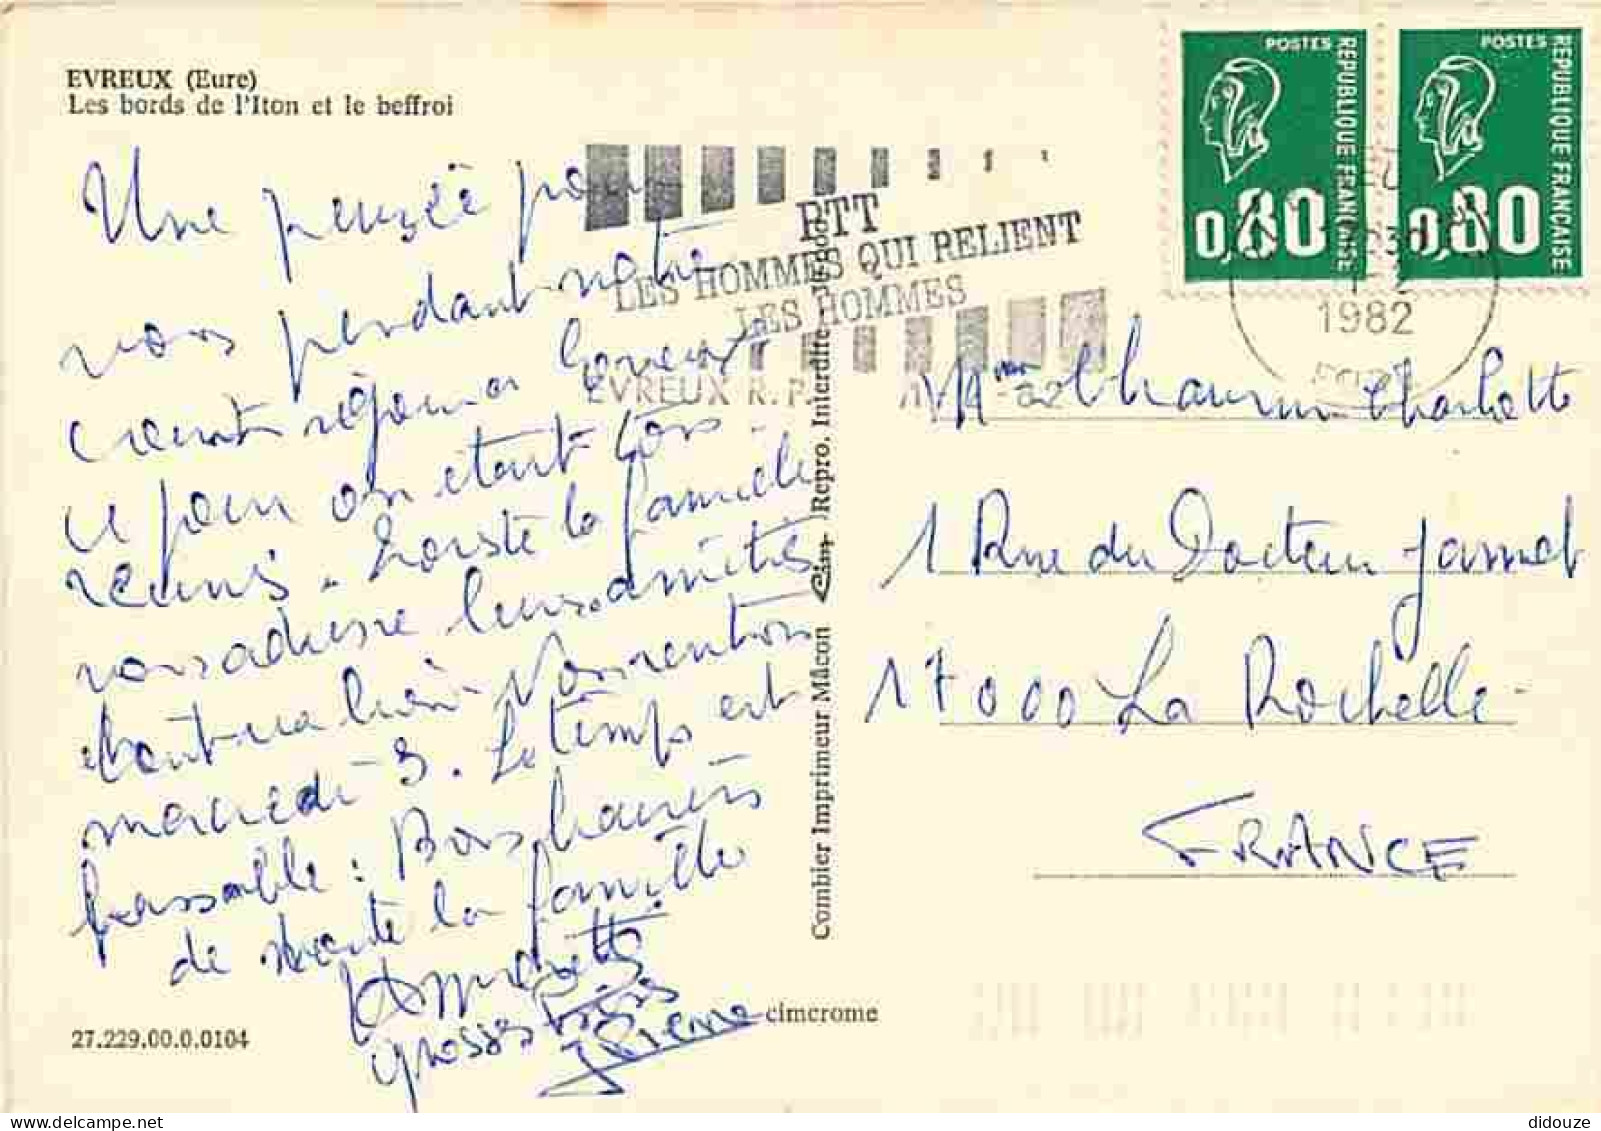 EVREUX (Eure)
Les bords de l'Iton et le beffroi
Une pensée pour
vous pendant notre
court séjour
ce jour on étant tous
réunis. toute la famille
vous adresse leurs amitiés
mercredi 3. Le temps est
passable : Bons baisers
de toute la famille
grosses bises
Pierre
27.229.00.0.0104
cimcrome
Combier Imprimeur Mâcon
Repro. Interdite
PTT
LES HOMMES QUI RELIENT
LES HOMMES
EVREUX R.P.
POSTES
REPUBLIQUE FRANÇAISE
0,80
POSTES
REPUBLIQUE FRANÇAISE
0,80
1982
Charlotte
1 Rue du Docteur Jamet
17000 La Rochelle
FRANCE
didouze